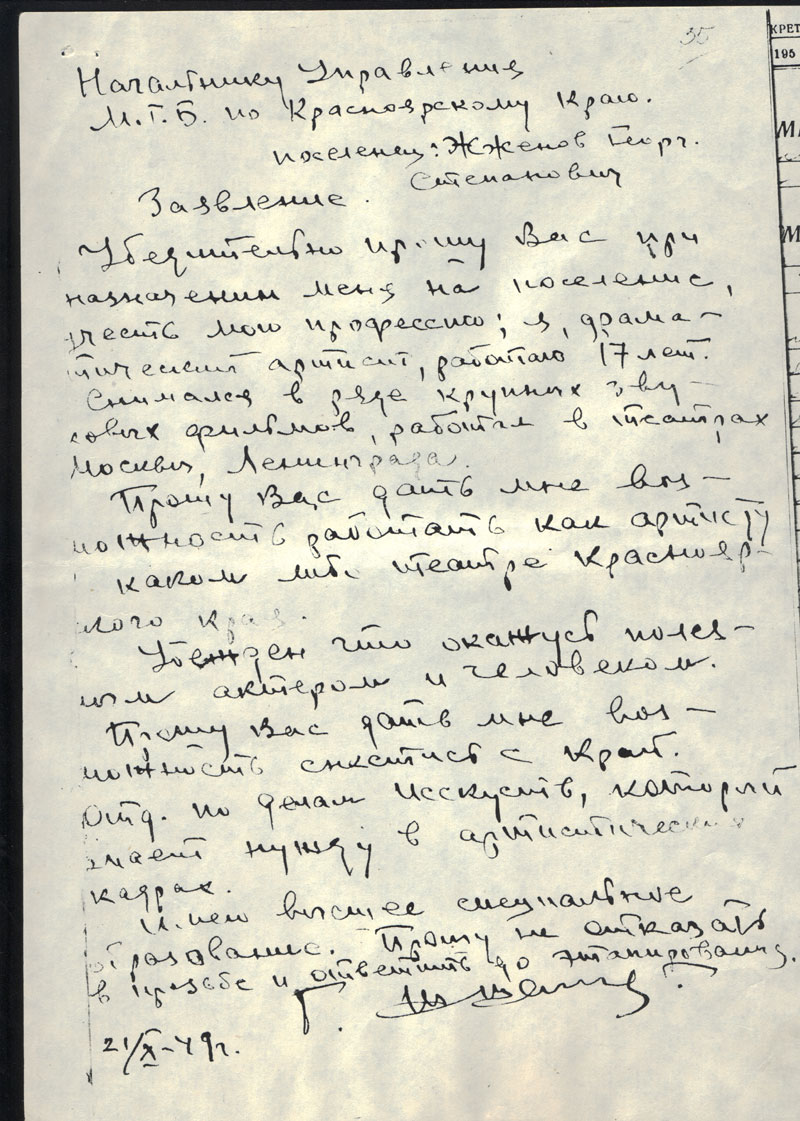 35
КРЕТ
195
Начальнику Управления
М.Г.Б. по Красноярскому краю.
поселенец: Жженов Георг.
Степанович
Заявление.
Убедительно прошу Вас при
назначении меня на поселение,
учесть мою профессию; я, драма-
тический артист, работаю 17 лет.
Снимался в ряде крупных зву-
ковых фильмов, работал в театрах
Москвы, Ленинграда.
Прошу Вас дать мне воз-
можность работать как артисту
каком либо театре Краснояр-
ского края.
Убежден что окажусь полез-
ным актером и человеком.
Прошу Вас дать мне воз-
можность списаться с Край.
Отд. по делам Исскуств, который
знает нужду в артистических
кадрах.
Имею высшее специальное
образование. Прошу не отказать
в просьбе и ответить до этапирования.
Г. Жженов.
21/X-49г.